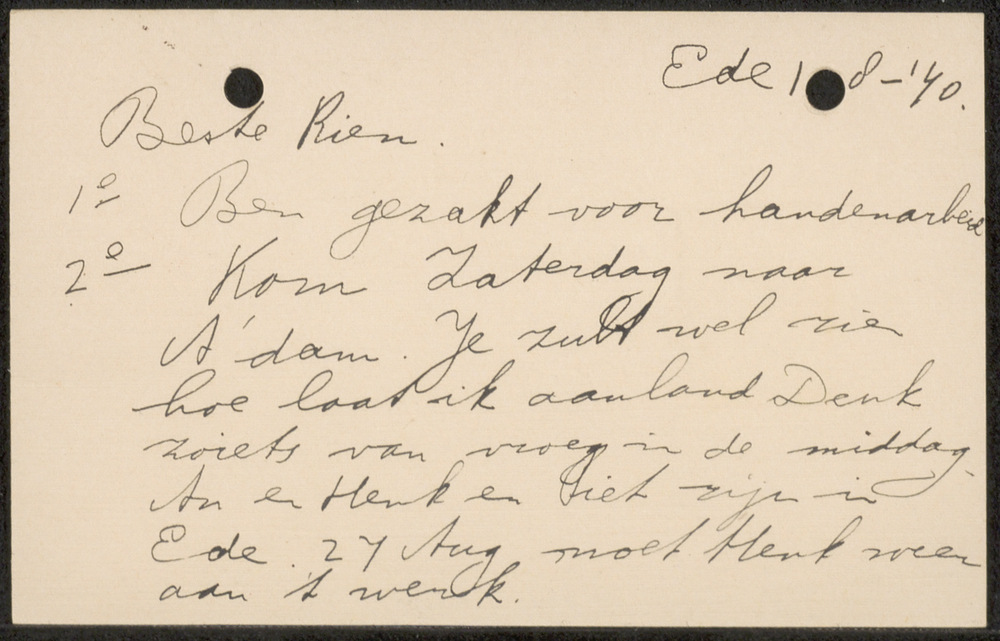 Ede 1 8-'40.
Beste Rien.
1º Ben gezakt voor handenarbeid
2º Kom Zaterdag naar
A'dam. Je zult wel zien
hoe laat ik aanland Denk
zoiets van vroeg in de middag.
An en Henk en Piet zijn in
Ede. 27 Aug moet Henk weer
aan 't werk.